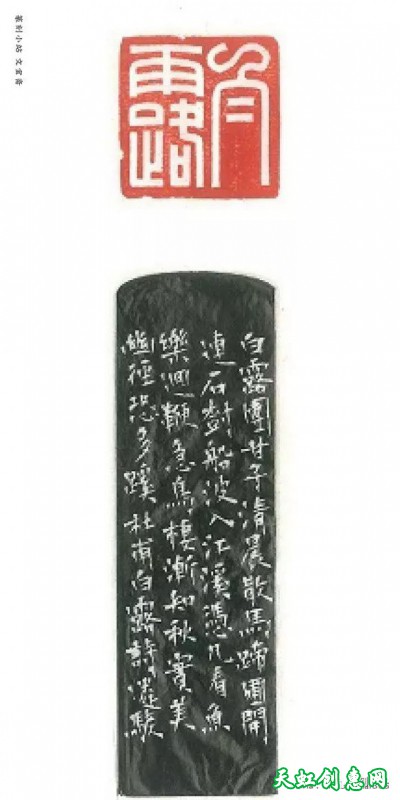 篆刻小站
露
白露團甘子清晨散馬蹄圃開
連石樹船渡入江溪憑几看魚
樂迴鞭急鳥棲漸知秋實美
幽徑恐多蹊杜甫白露詩
天虹创意网